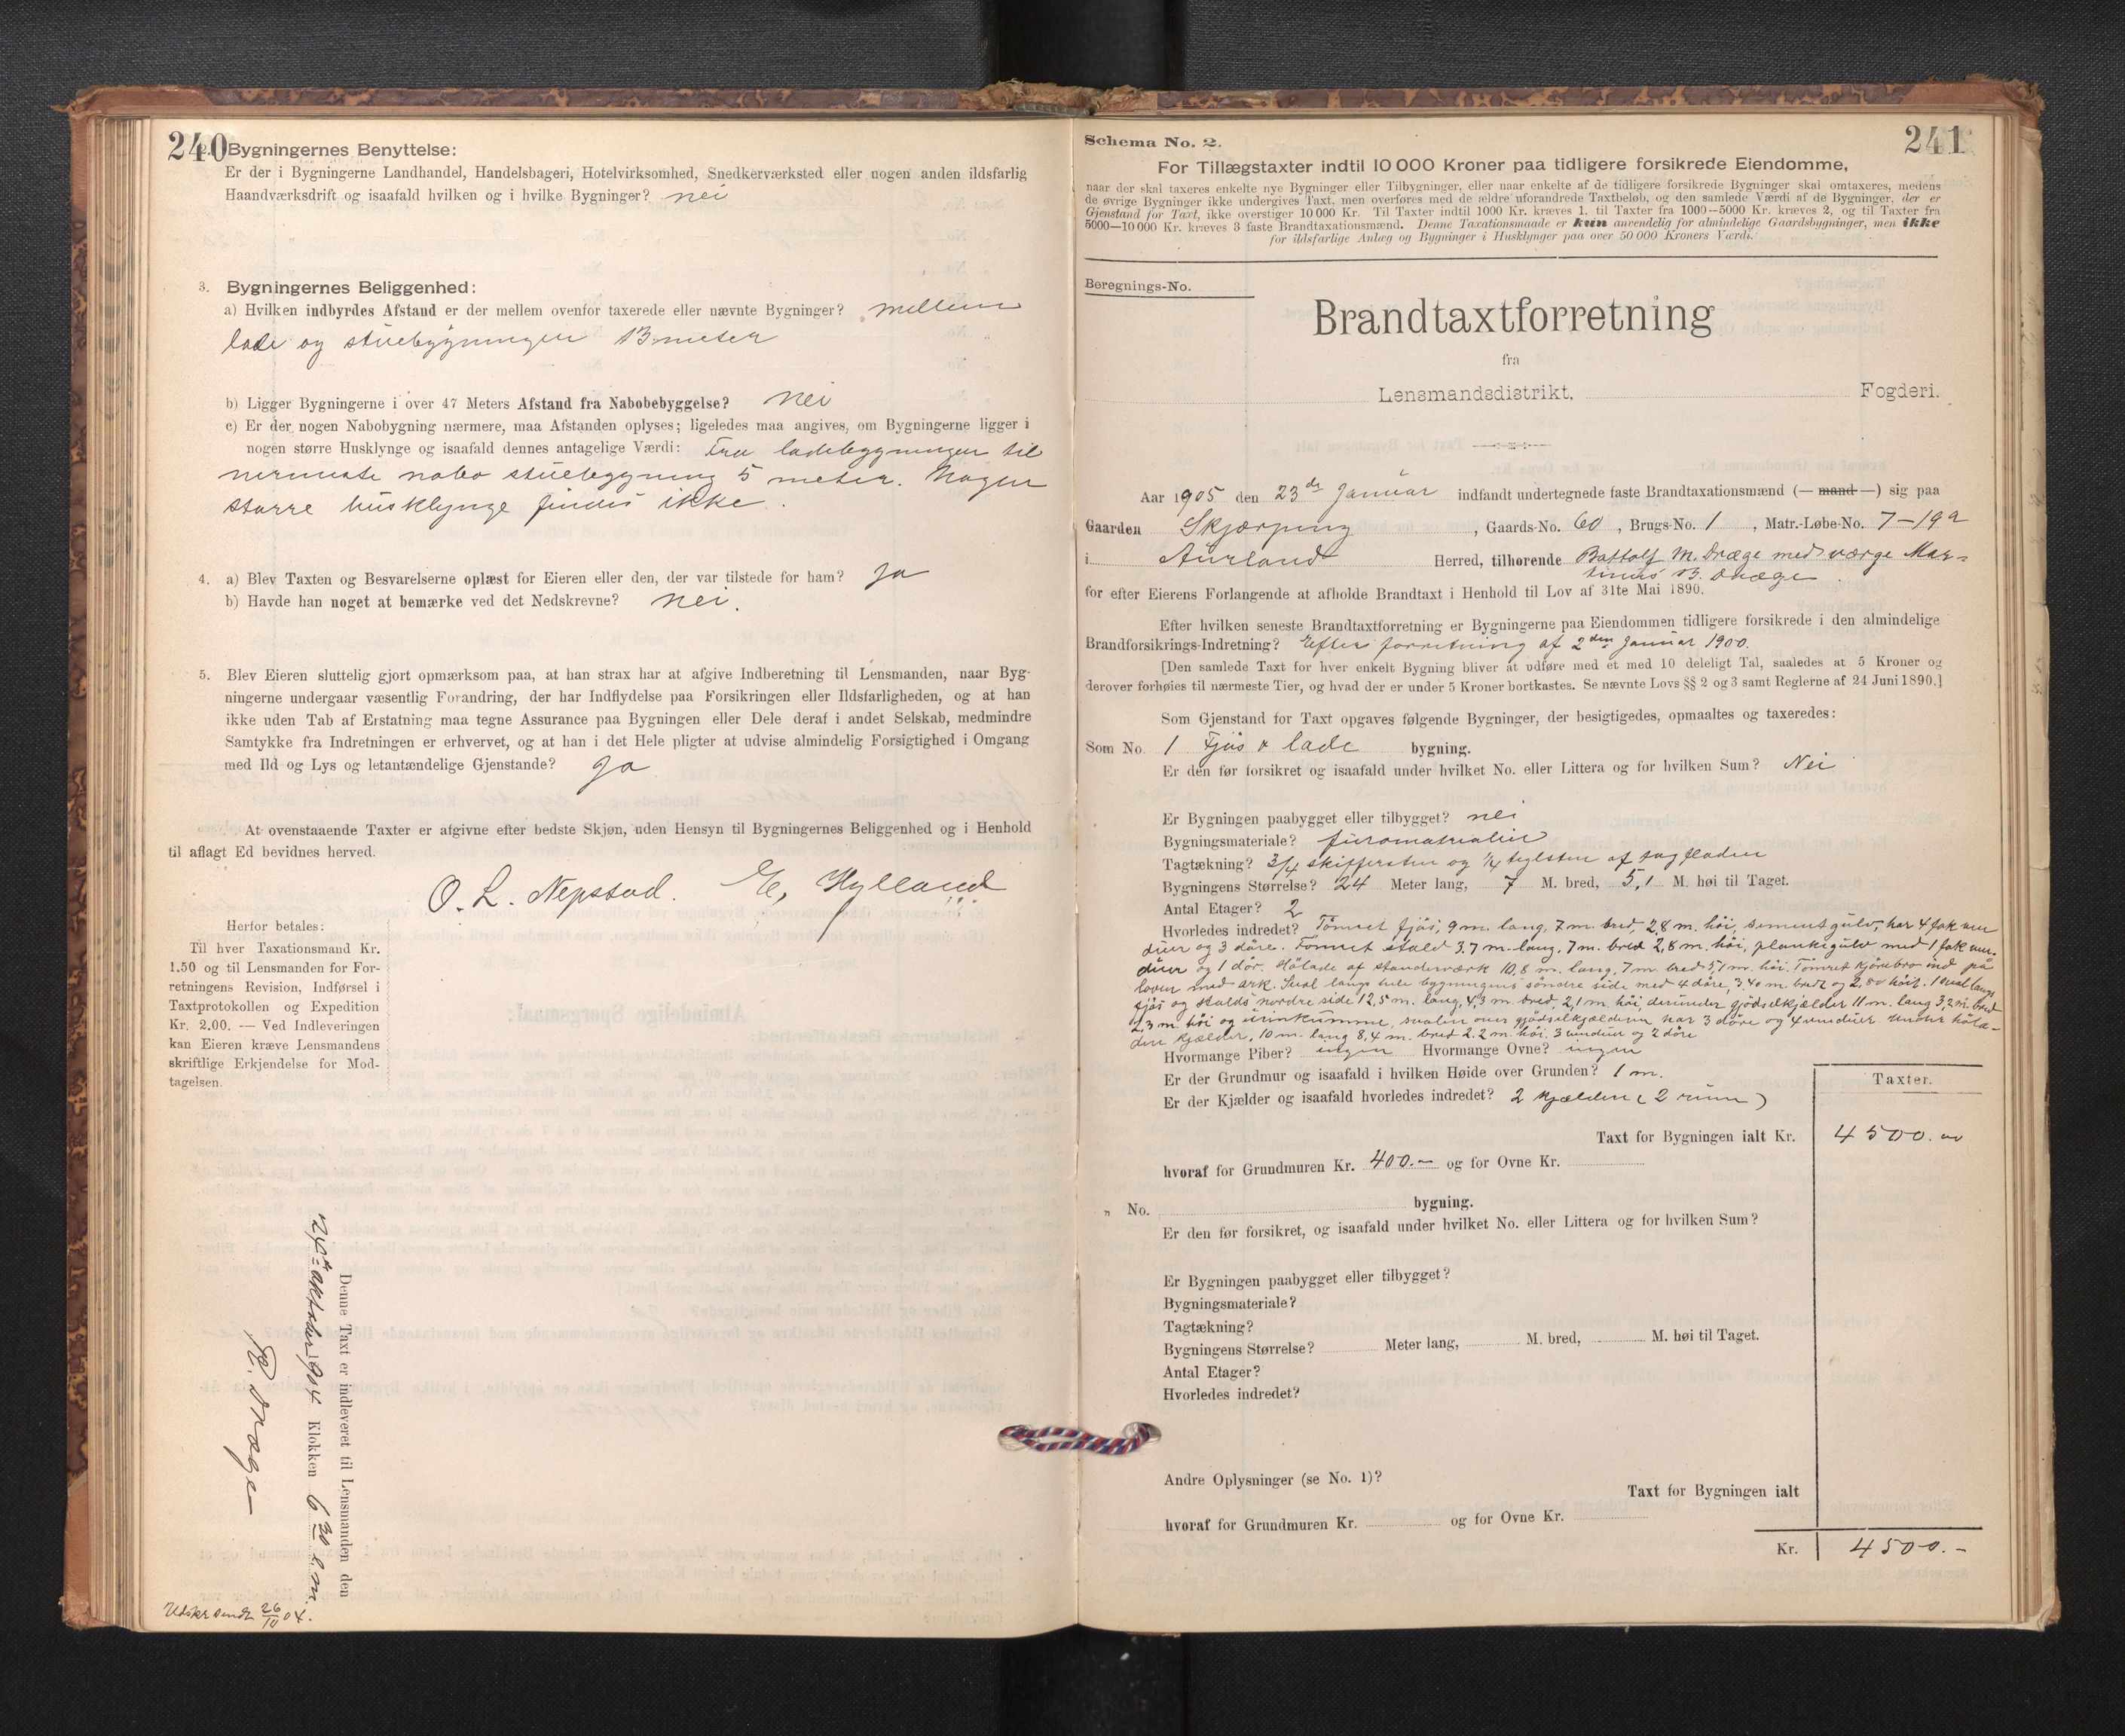 240
2. Bygningernes Benyttelse:
Er der i Bygningerne Landhandel, Handelsbageri, Hotelvirksomhed, Snedkerværksted eller nogen anden ildsfarlig
Haandværksdrift og isaafald hvilken og i hvilke Bygninger? nei
3. Bygningernes Beliggenhed:
a) Hvilken indbyrdes Afstand er der mellem ovenfor taxerede eller nævnte Bygninger? mellem
lade og stuebygningen 13 meter
b) Ligger Bygningerne i over 47 Meters Afstand fra Nabobebyggelse? nei
c) Er der nogen Nabobygning nærmere, maa Afstanden oplyses; ligeledes maa angives, om Bygningerne ligger i
nogen større Husklynge og isaafald dennes antagelige Værdi: Fra ladebygningen til
nermeste nabo stuebygning 5 meter. Nogen
større husklynge findes ikke.
4. a) Blev Taxten og Besvarelserne oplæst for Eieren eller den, der var tilstede for ham? Ja
b) Havde han noget at bemærke ved det Nedskrevne? nei.
5. Blev Eieren sluttelig gjort opmærksom paa, at han strax har at afgive Indberetning til Lensmanden, naar Byg-
ningerne undergaar væsentlig Forandring, der har Indflydelse paa Forsikringen eller Ildsfarligheden, og at han
ikke uden Tab af Erstatning maa tegne Assurance paa Bygningen eller Dele deraf i andet Selskab, medmindre
Samtykke fra Indretningen er erhvervet, og at han i det Hele pligter at udvise almindelig Forsigtighed i Omgang
med Ild og Lys og letantændelige Gjenstande? Ja
At ovenstaaende Taxter er afgivne efter bedste Skjøn, uden Hensyn til Bygningernes Beliggenhed og i Henhold
til aflagt Ed bevidnes herved.
O. L. Nepstad. E. Hylland
Herfor betales:
Til hver Taxationsmand Kr.
1.50 og til Lensmanden for For-
retningens Revision, Indførsel i
Taxtprotokollen og Expedition
Kr. 2.00. — Ved Indleveringen
kan Eieren kræve Lensmandens
skriftlige Erkjendelse for Mod-
tagelsen.
Denne Taxt er indleveret til Lensmanden den
24de oktober 1904 Klokken 6 30 em.
R. Dræge
Udskr sendt 26/10 04.
241
Schema No. 2.
For Tillægstaxter indtil 10 000 Kroner paa tidligere forsikrede Eiendomme,
naar der skal taxeres enkelte nye Bygninger eller Tilbygninger, eller naar enkelte af de tidligere forsikrede Bygninger skal omtaxeres, medens
de øvrige Bygninger ikke undergives Taxt, men overføres med de ældre uforandrede Taxtbeløb, og den samlede Værdi af de Bygninger, der er
Gjenstand for Taxt, ikke overstiger 10 000 Kr. Til Taxter indtil 1000 Kr. kræves 1, til Taxter fra 1000—5000 Kr. kræves 2, og til Taxter fra
5000—10 000 Kr. kræves 3 faste Brandtaxationsmænd. Denne Taxationsmaade er kun anvendelig for almindelige Gaardsbygninger, men ikke
for ildsfarlige Anlæg og Bygninger i Husklynger paa over 50 000 Kroners Værdi.
Beregnings-No.
Brandtaxtforretning
fra
Lensmandsdistrikt, Fogderi.
Aar 1905 den 23de Januar indfandt undertegnede faste Brandtaxationsmænd (— mand —) sig paa
Gaarden Skjærping, Gaards-No. 60, Brugs-No. 1, Matr.-Løbe-No. 7-19a
i Aurland Herred, tilhørende Battolf M. Dræge med værge Mar-
tinus B. Dræge
for efter Eierens Forlangende at afholde Brandtaxt i Henhold til Lov af 31te Mai 1890.
Efter hvilken seneste Brandtaxtforretning er Bygningerne paa Eiendommen tidligere forsikrede i den almindelige
Brandforsikrings-Indretning? Efter forretning af 2den Januar 1900.
[Den samlede Taxt for hver enkelt Bygning bliver at udføre med et med 10 deleligt Tal, saaledes at 5 Kroner og
derover forhøies til nærmeste Tier, og hvad der er under 5 Kroner bortkastes. Se nævnte Lovs §§ 2 og 3 samt Reglerne af 24 Juni 1890.]
Som Gjenstand for Taxt opgaves følgende Bygninger, der besigtigedes, opmaaltes og taxeredes:
Som No. 1 Fjøs & lade bygning.
Er den før forsikret og isaafald under hvilket No. eller Littera og for hvilken Sum? Nei
Er Bygningen paabygget eller tilbygget? nei
Bygningsmateriale? furomaterialier
Tagtækning? 3/4 skiffersten og 1/4 teglsten af tagfladen
Bygningens Størrelse? 24 Meter lang, 7 M. bred, 5,1 M. høi til Taget.
Antal Etager? 2
Hvorledes indredet? Tømret fjøs, 9 m. lang, 7 m. bred, 2,8 m. høi, sementgulv, har 4 fak vin
duer og 3 døre. Tømret stald 3,7 m. lang, 7 m. bred 2,8 m. høi, plankegulv med 1 fak vin-
duer og 1 dør. Hølade af standerværk 10,8 m. lang, 7 m. bred 5,1 m. høi. Tømret kjørebro ind på
loven med ark. Sval langs hele bygningens søndre side med 4 døre, 3,40 m. bred og 2,80 høit. 1 sval langs
fjøs og stalds nordre side 12,5 m. lang, 4,3 m. bred, 2,1 m. høi, derunder gjødselkjælder 11 m. lang 3,2 m. bred
2,3 m. høi og urinkumme, svalen over gjødselkjælderen har 3 døre og 4 vinduer under høla-
den kjælder, 10 m. lang 8,4 m. bred 2.2 m. høi. 3 vinduer og 2 døre
Hvormange Piber? ingen Hvormange Ovne? ingen
Er der Grundmur og isaafald i hvilken Høide over Grunden? 1 m.
Er der Kjælder og isaafald hvorledes indredet? 2 kjældere (2 rum)
Taxter.
Taxt for Bygningen ialt Kr. 4500.00
hvoraf for Grundmuren Kr. 400.— og for Ovne Kr.
„ No. bygning.
Er den før forsikret, og isaafald under hvilket No. eller Littera og for hvilken Sum?
Er Bygningen paabygget eller tilbygget?
Bygningsmateriale?
Tagtækning?
Bygningens Størrelse? Meter lang, M. bred, M. høi til Taget.
Antal Etager?
Hvorledes indredet?
Andre Oplysninger (se No. 1)?
Taxt for Bygningen ialt
hvoraf for Grundmuren Kr. og for Ovne Kr.
Kr. 4500.—